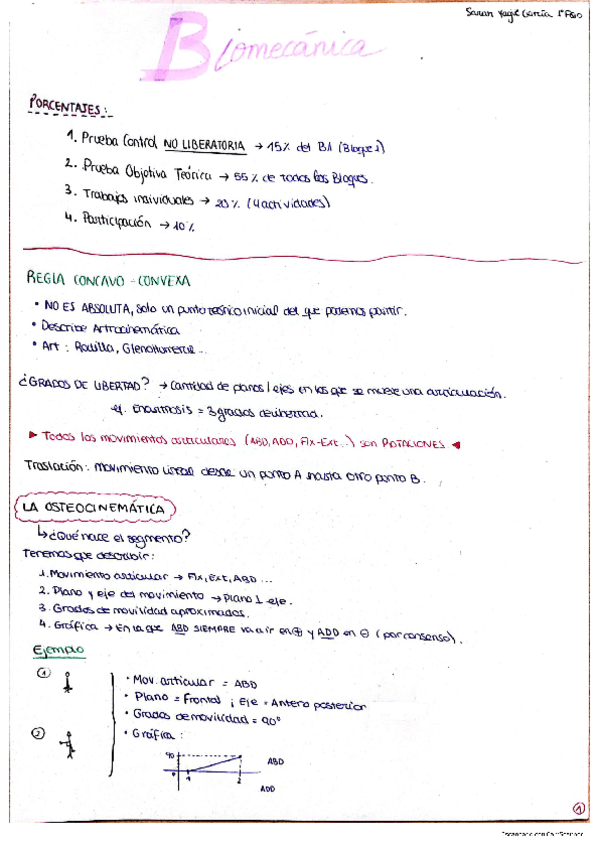 Sarah Yagüe García 1º Fisio
Biomecánica
PORCENTAJES:
1. Prueba Control NO LIBERATORIA → 15% del B1 (Bloque 1)
2. Prueba Objetiva Teórica → 55% de todos los Bloques.
3. Trabajos individuales → 20% (4 actividades)
4. Participación → 10%
REGLA CONCAVO-CONVEXA
• NO ES ABSOLUTA, solo un punto teórico inicial del que podemos partir.
• Describe Artrocinemática
• Art: Rodilla, Glenohumeral...
¿GRADOS DE LIBERTAD? → Cantidad de planos/ejes en los que se mueve una articulación.
ej. Enartrosis = 3 grados de libertad.
► Todos los movimientos articulares (ABD, ADD, Flx-Ext..) son ROTACIONES ◄
Traslación: movimiento lineal desde un punto A hasta otro punto B.
LA OSTEOCINEMÁTICA
↳ ¿Qué hace el segmento?
Tenemos que describir:
1. Movimiento articular → Flx, Ext, ABD...
2. Plano y eje del movimiento → Plano ⊥ eje.
3. Grados de movilidad aproximados.
4. Gráfica → En la que ABD SIEMPRE va a ir en ⊕ y ADD en ⊖ (por consenso).
Ejemplo
① • Mov. articular = ABD
• Plano = Frontal ; Eje = Antero posterior
• Grados de movilidad = 90º
② • Gráfica:
90 ABD
0 1 2
ADD
①
Escaneado con CamScanner